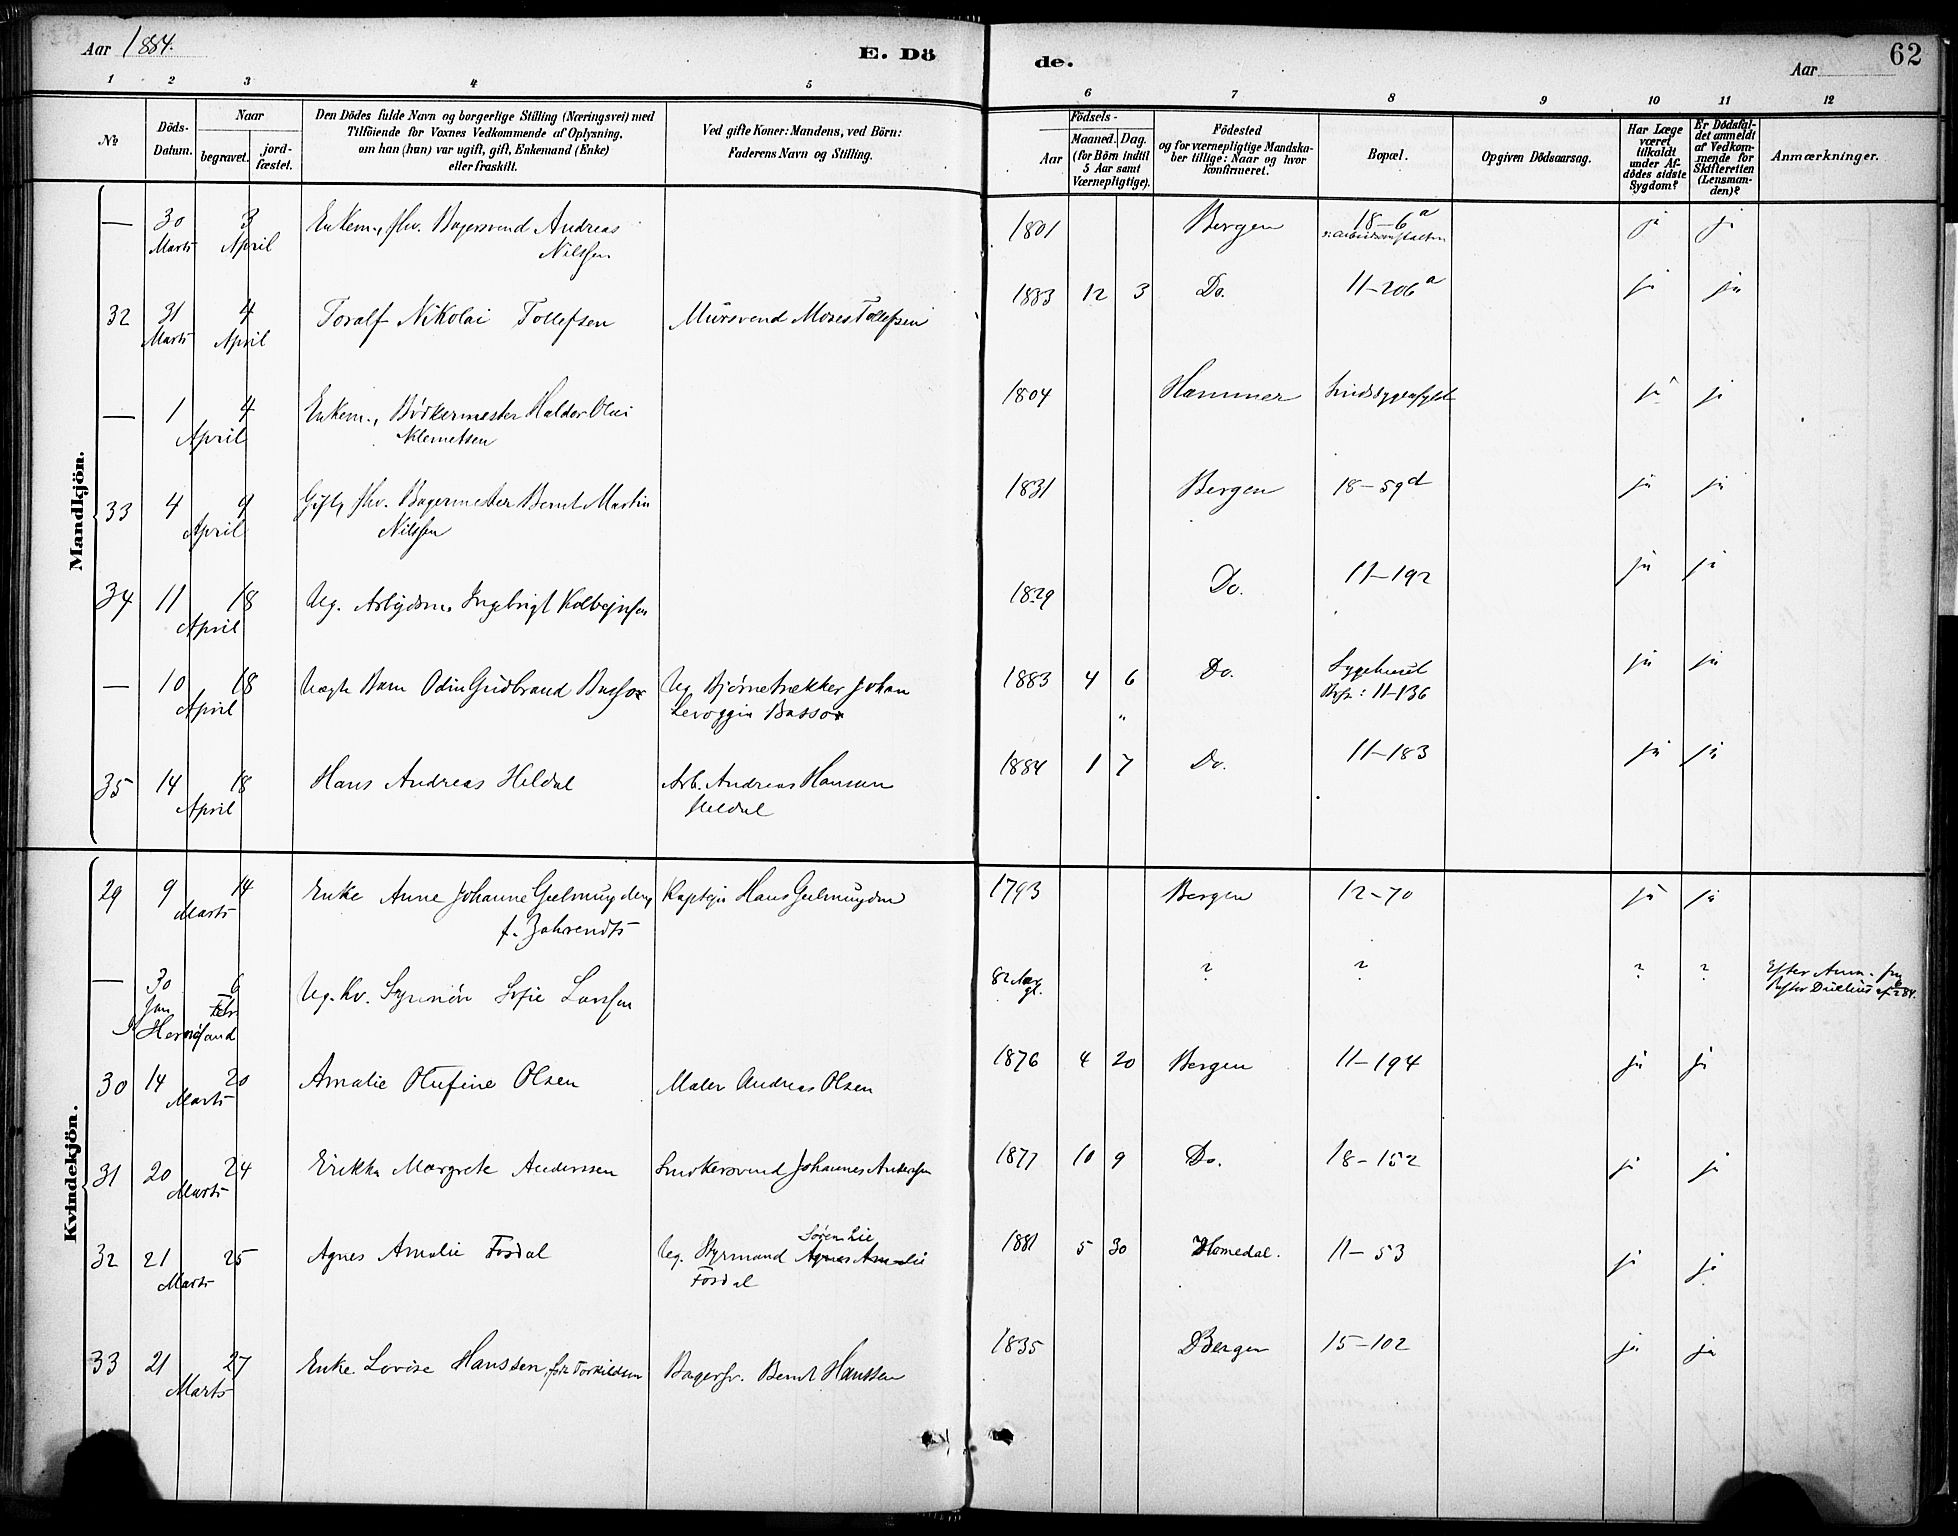 Aar 1884.
E. Dö
de.
Aar
62
1 2 3 4 5 6 7 8 9 10 11 12
No
Döds-Datum.
Naar
begravet.
jord-fæstet.
Den Dödes fulde Navn og borgerlige Stilling (Næringsvei) med
Tilföiende for Voxnes Vedkommende af Oplysning,
om han (hun) var ugift, gift, Enkemand (Enke)
eller fraskilt.
Ved gifte Koner: Mandens, ved Börn:
Faderens Navn og Stilling.
Födsels-
Aar
Maaned. Dag.
(for Börn indtil
5 Aar samt
Værnepligtige).
Födested
og for værnepligtige Mandska-
ber tillige: Naar og hvor
konfirmeret.
Bopæl.
Opgiven Dödsaarsag.
Har Læge
været
tilkaldt
under Af-
dödes sidste
Sygdom?
Er Dödsfal-
det anmeldt
af Vedkom-
mende for
Skifteretten
(Lensman-
den)?
Anmærkninger.
Mandkjön.
— 30 Marts 3 April Enkem., fhv. Bagersvend Andreas Nilssen 1801 Bergen 18–6a ja ja
32 31 Marts 4 April Toralf Nikolai Tollefsen Mursvend Moses Tollefsen 1883 12 3 Do. 11–206a ja ja
— 1 4 April Enkem., Bödkermester Halder Olai Klemetsen 1804 Hammer ja ja
33 4 9 April Gift, fhv. Bagermester Bernt Martin Nilssen 1831 Bergen 18–59d ja ja
34 11 18 April Ug. Arbejdsm. Ingebrigt Kolbejnsen 1829 Do. 11–192 ja ja
— 10 18 April Uægte Barn Odin Gudbrand Ug. Bjørnetrækker Johan 1883 4 6 Do. Sygehuset 11–136 ja ja
35 14 18 April Hans Andreas Heldal Arb. Andreas Hansen Heldal 1884 1 7 Do. 11–183 ja ja
Kvindekjön.
29 9 14 Marts Enke Anne Johanne Geelmuyden f. Zahrendts Kaptejn Hans Geelmuyden 1793 Bergen 12–70 ja ja
— 30 Jan 6 Febr I Hernösand Ug. Kv. Synnöv Sofie Larssen 82 Aar gl. ? ? ? ? Efter Anm. fra
30 14 20 Marts Amalie Olufine Olsen Maler Andreas Olsen 1876 4 20 Bergen 11–194 ja ja
31 20 24 Marts Erikka Margrete Anderssen Snedkersvend Johannes Anderssen 1877 10 9 Do. 18–152 ja ja
32 21 25 Marts Agnes Amalie Fosdal Ug. Styrmand Agnes Amalie Sören Lie Fosdal 1881 5 30 Homedal. 11–53 ja ja
33 21 27 Marts Enke Lovise Hanssen, født Torkildsen Bagersv. Bernt Hanssen 1835 Bergen 15–102 ja ja